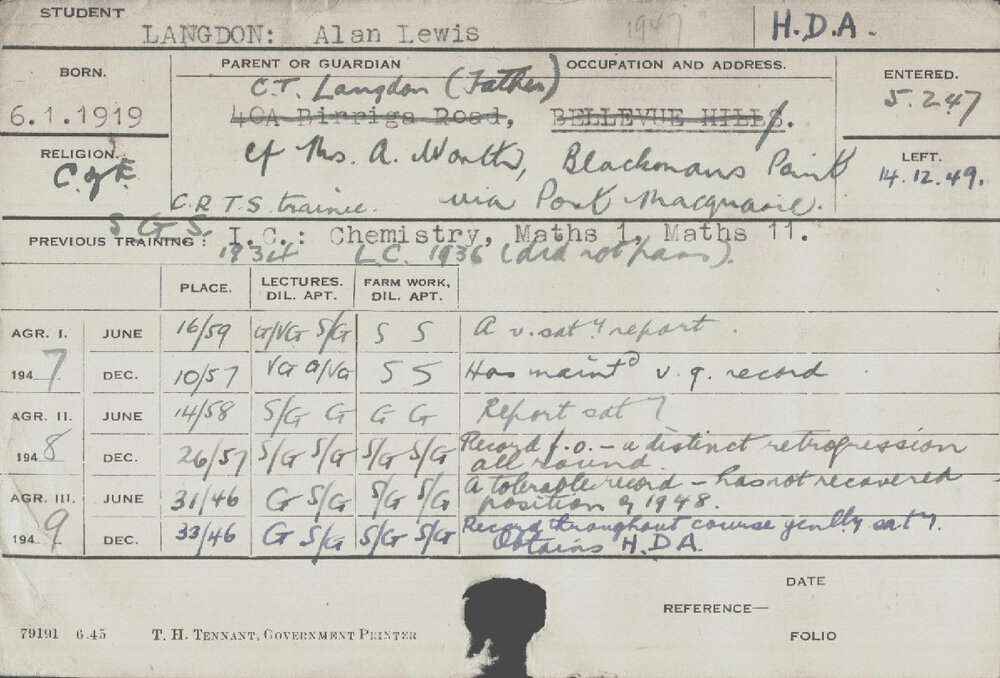 STUDENT
LANGDON: Alan Lewis 1947 H.D.A.
BORN. PARENT OR GUARDIAN OCCUPATION AND ADDRESS. ENTERED.
C.T. Langdon (Father) 5.2.47
6.1.1919 40A Birriga Road, BELLEVUE HILL.
RELIGION. LEFT.
C of E c/ Mrs. A. Blackmans Point 14.12.49.
C.R.T.S. trainee. via Port Macquarie.
S G S.
PREVIOUS TRAINING: I.C.: Chemistry, Maths 1, Maths 11.
1934 L.C. 1936 (did not pass).
PLACE. LECTURES. DIL. APT. FARM WORK, DIL. APT.
AGR. I. JUNE 16/59 G/VG S/G S S A v. sat y report.
1947 DEC. 10/57 VG G/VG S S Has maintd v. g. record
AGR. II. JUNE 14/58 S/G G G G Report sat y
1948 DEC. 26/57 S/G S/G S/G S/G Record f.o. - a distinct retrogression
all round.
AGR. III. JUNE 31/46 G S/G S/G S/G A tolerable record - has not recovered
position of 1948.
1949 DEC. 33/46 G S/G S/G S/G Record throughout course genlly sat y.
Obtains H.D.A.
DATE
REFERENCE—
79191 6.45 T. H. TENNANT, GOVERNMENT PRINTER FOLIO